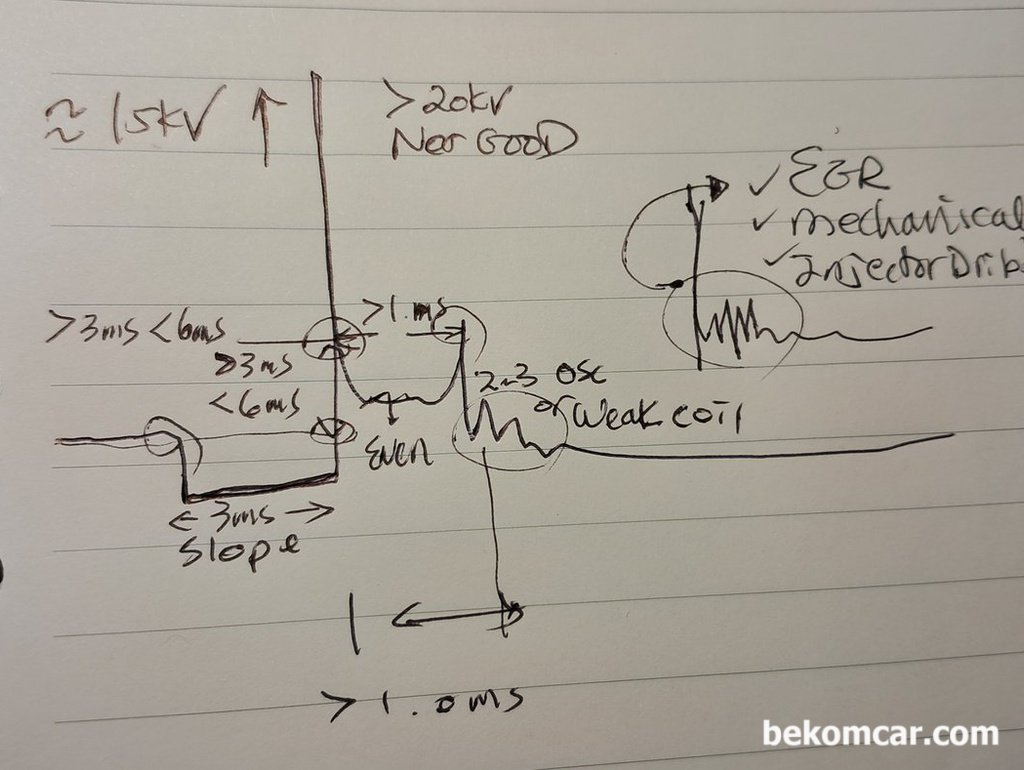 ≈ 15kV ↑
>20kV
Not GOOD
✓ EGR
✓ mechanical
✓ Injector Drib
>3ms <6ms
>1.ms
≥3ms
<6ms
2~3 OSC
or Weak coil
Even
← 3ms →
Slope
> 1.0ms
bekomcar.com